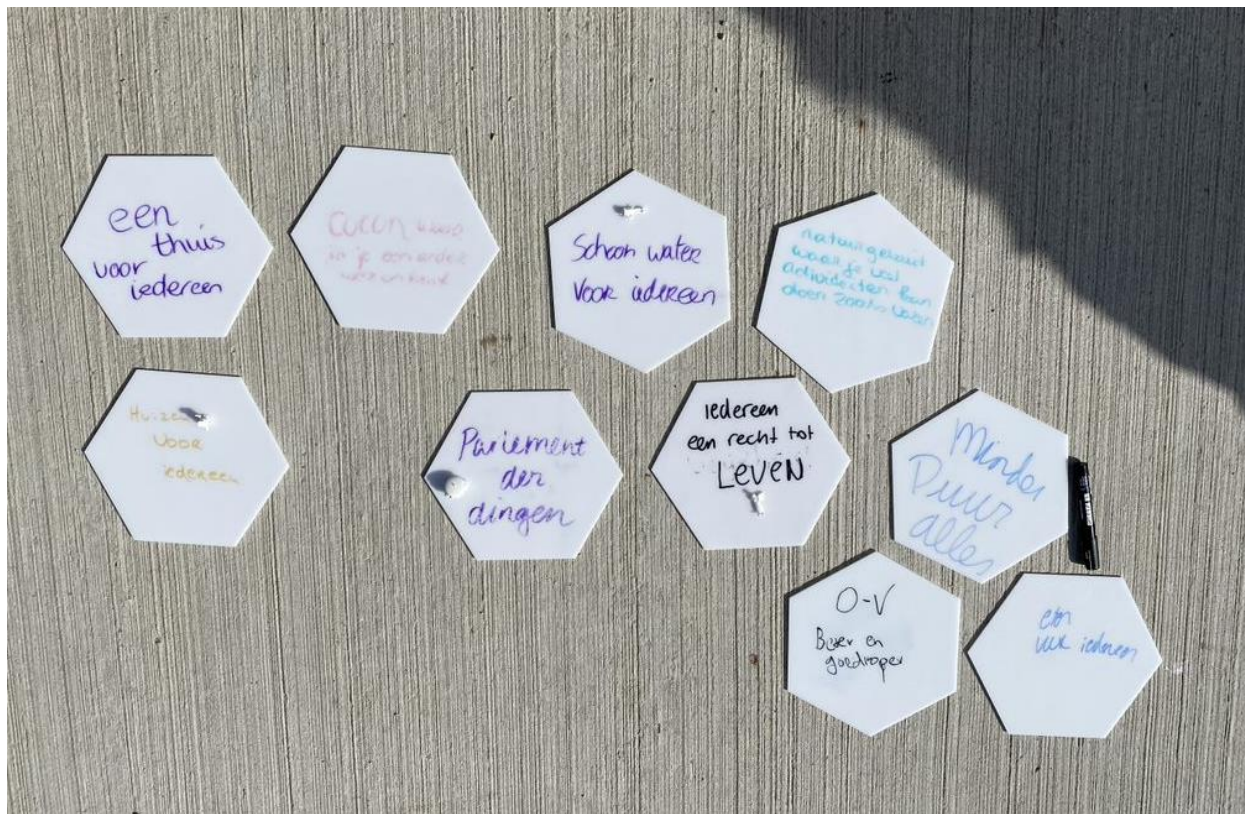 een
thuis
voor
iedereen
cocon waar
in je een ander
Schoon water
voor iedereen
natuurgebied
waar je veel
activiteiten kan
doen zoals varen
Huizen
voor
iedereen
Parlement
der
dingen
iedereen
een recht tot
LEVEN
Minder
Duur
alles
O-V
Beter en
goedkoper
eten
iedereen